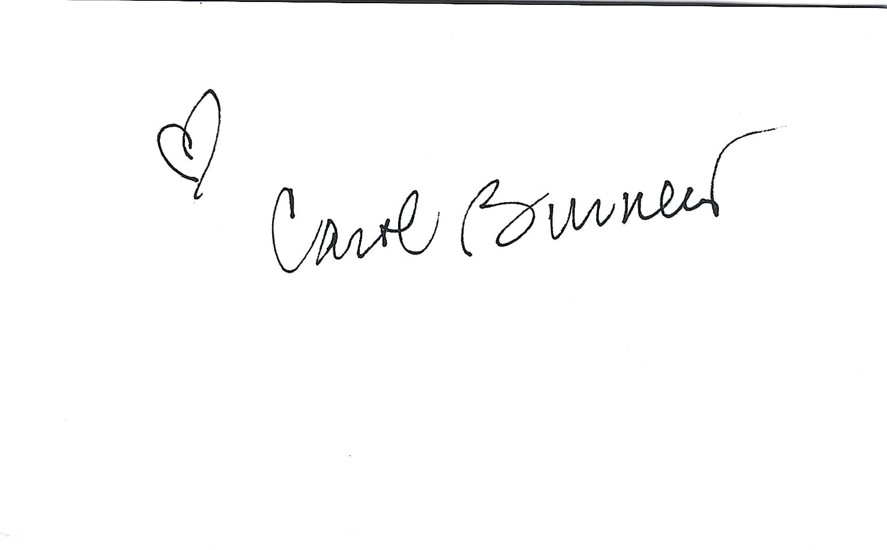 Carol Burnett